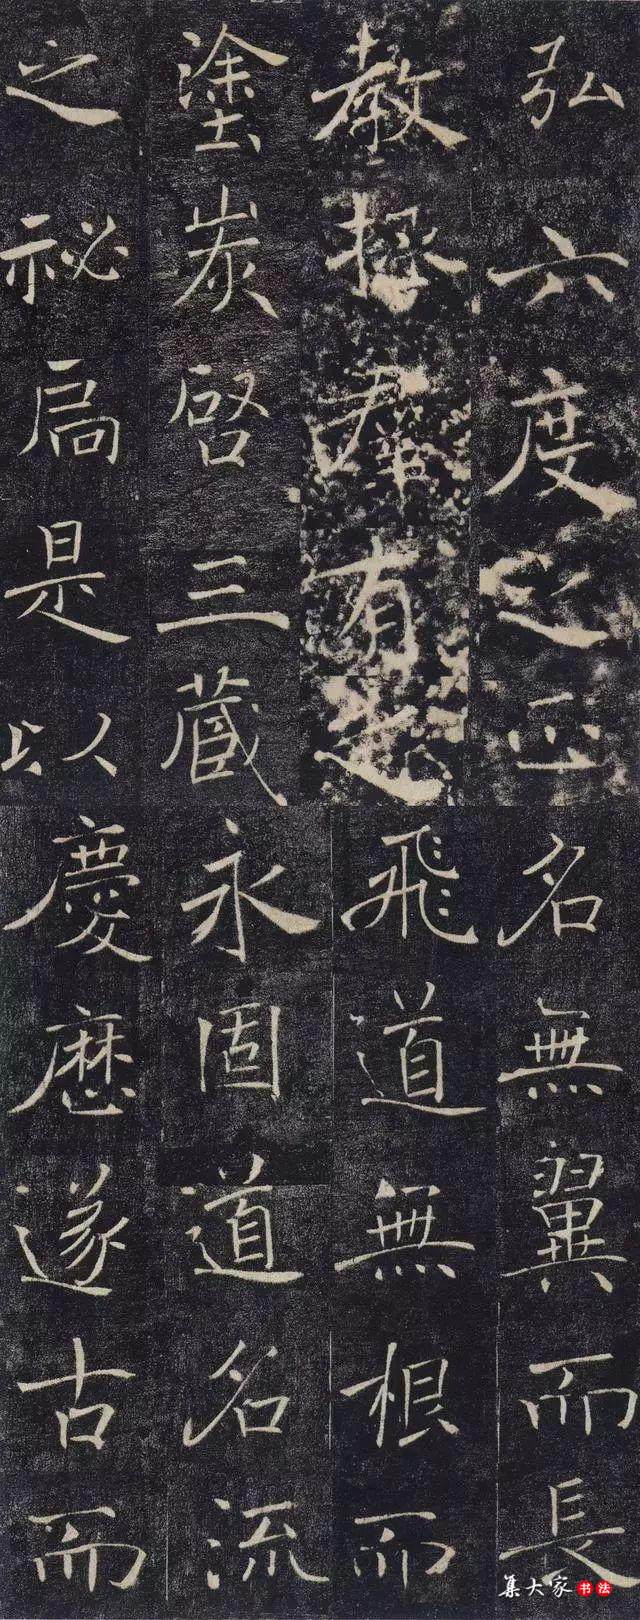 弘六度之正
教拯群有之
塗炭啓三藏
之祕扃是以
名無翼而長
飛道無根而
永固道名流
慶歷遂古而
集大家书法